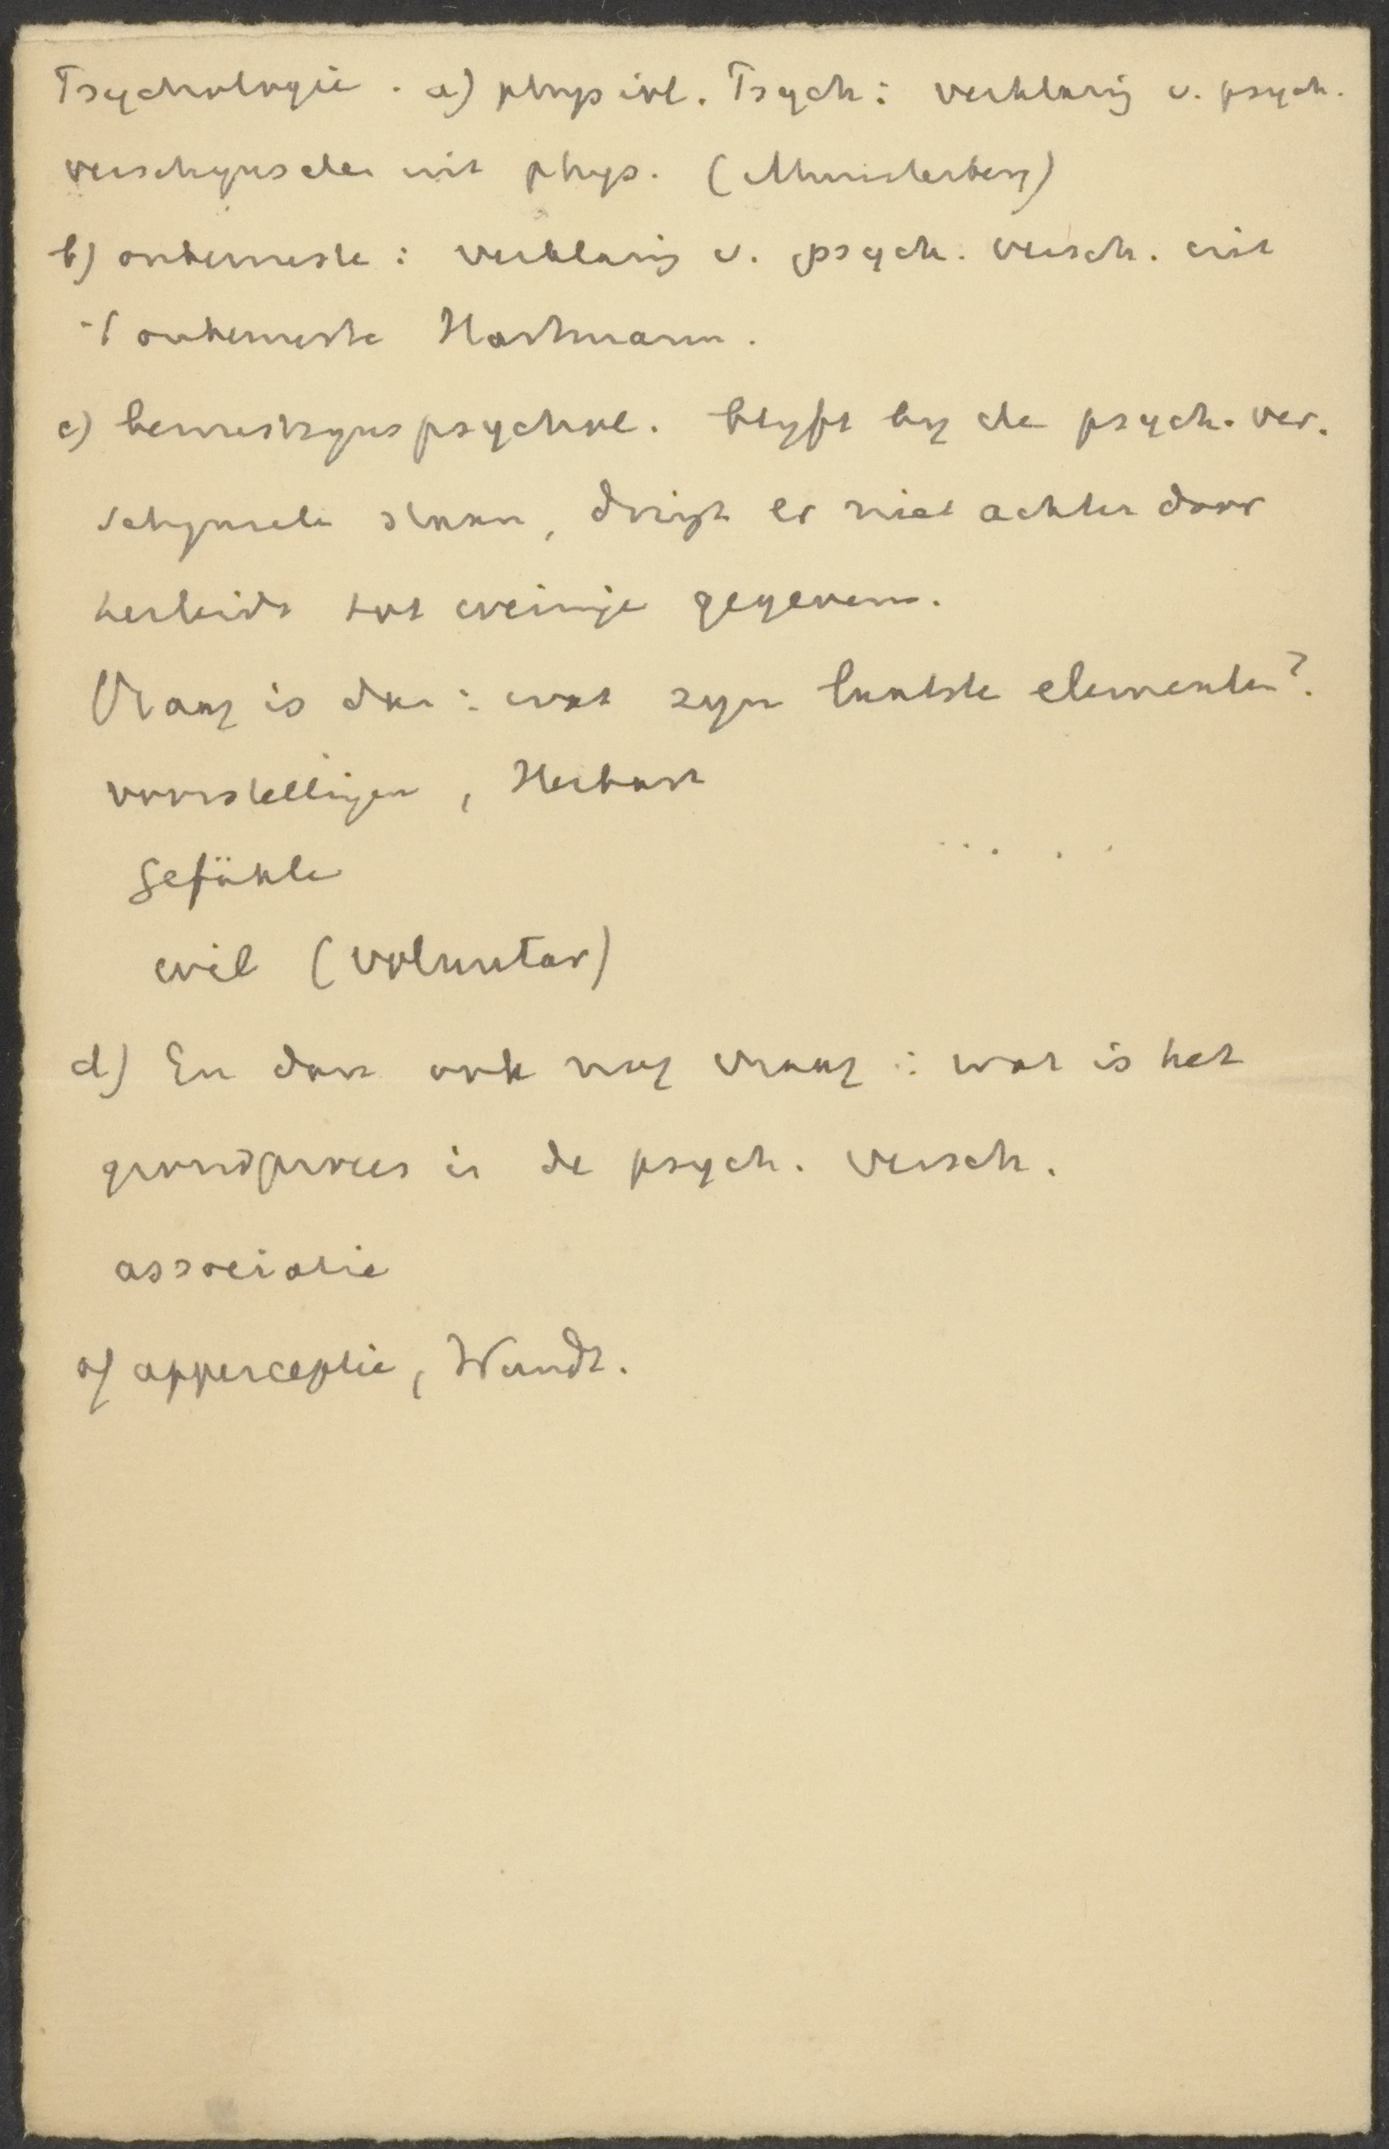 Psychologie. a) physiol. Psych: verklaring v. psych.
verschynselen uit phys. (Munsterberg)
b) onbewuste: verklaring v. psych. versch. uit
't onbewuste Hartmann.
c) bewustzynspsychol. blyft by de psych. ver.
schynselen staan, dringt er niet achter door
herleidt tot weinige gegevens.
Vraag is dan: wat zyn laatste elementen?
voorstellingen, Herbart
Gefühle
wil (voluntar)
d) En dan ook nog vraag: wat is het
grondproces in de psych. versch.
associatie
of apperceptie, Wundt.